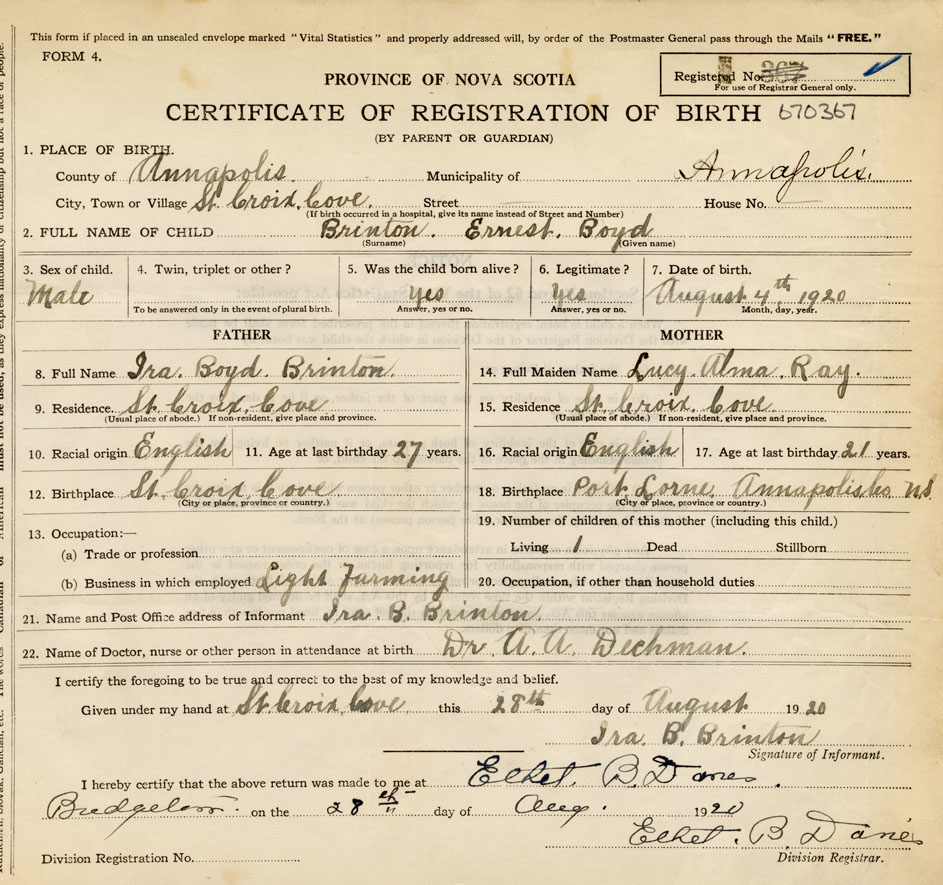 This form if placed in an unsealed envelope marked "Vital Statistics" and properly addressed will, by order of the Postmaster General pass through the Mails "FREE."
FORM 4.
Registered No. 367
For use of Registrar General only.
PROVINCE OF NOVA SCOTIA
CERTIFICATE OF REGISTRATION OF BIRTH 670367
(BY PARENT OR GUARDIAN)
1. PLACE OF BIRTH.
County of Annapolis. Municipality of Annapolis.
City, Town or Village St. Croix Cove. Street House No.
(If birth occurred in a hospital, give its name instead of Street and Number)
2. FULL NAME OF CHILD Brinton. Ernest Boyd
(Surname) (Given name)
3. Sex of child. 4. Twin, triplet or other? 5. Was the child born alive? 6. Legitimate? 7. Date of birth.
Male Yes Yes August 4th 1920
To be answered only in the event of plural birth. Answer, yes or no. Answer, yes or no. Month, day, year.
FATHER MOTHER
8. Full Name Ira. Boyd. Brinton. 14. Full Maiden Name Lucy Alma Ray.
9. Residence. St. Croix Cove 15. Residence St. Croix Cove
(Usual place of abode.) If non-resident, give place and province. (Usual place of abode.) If non-resident, give place and province.
10. Racial origin English 11. Age at last birthday 27 years. 16. Racial origin English 17. Age at last birthday 21 years.
12. Birthplace St. Croix Cove. 18. Birthplace Port Lorne Annapolis Co N.S.
(City or place, province or country.) (City or place, province or country.)
13. Occupation:— 19. Number of children of this mother (including this child.)
(a) Trade or profession Living 1 Dead Stillborn
(b) Business in which employed Light Farming 20. Occupation, if other than household duties
21. Name and Post Office address of Informant Ira. B. Brinton.
22. Name of Doctor, nurse or other person in attendance at birth Dr. A. A. Dechman.
I certify the foregoing to be true and correct to the best of my knowledge and belief.
Given under my hand at St. Croix Cove this 28th day of August 1920
Ira B. Brinton
Signature of Informant.
I hereby certify that the above return was made to me at B.
on the 28th day of Aug. 1920
B.
Division Registration No. Division Registrar.